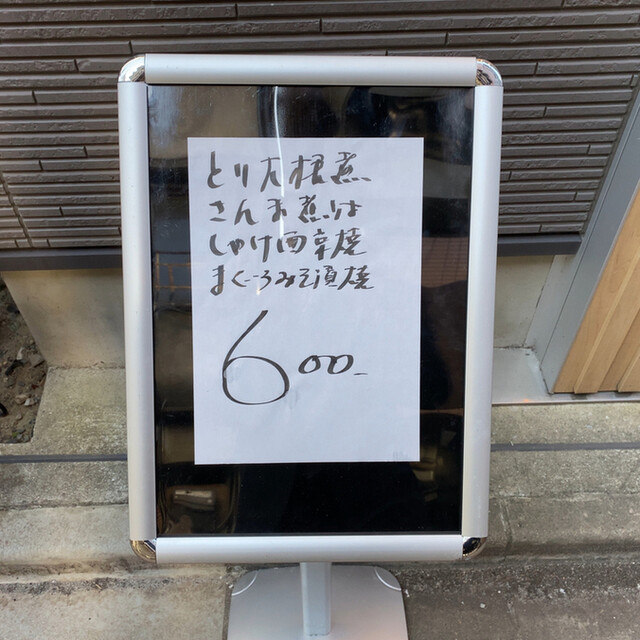 とり大根煮
さんま煮付
しゃけ西京焼
まぐろみそ漬焼
600-